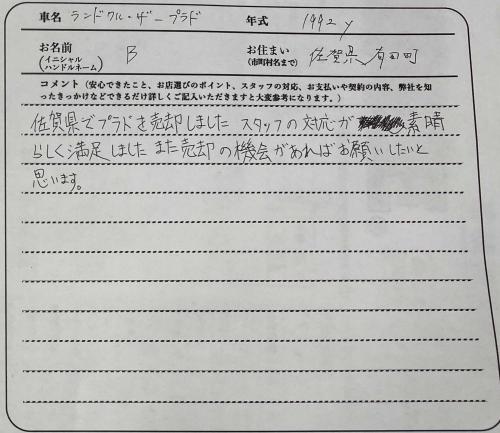 車名 ランドクル・ザープラド 年式 1992y
お名前 (イニシャル ハンドルネーム) B お住まい (市町村名まで) 佐賀県 有田町
コメント（安心できたこと、お店選びのポイント、スタッフの対応、お支払いや契約の内容、弊社を知
ったきっかけなどできるだけ詳しくご記入いただきますと大変参考になります。）
佐賀県でプラドを売却しました スタッフの対応が 素晴
らしく満足しました また売却の機会があればお願いしたいと
思います。